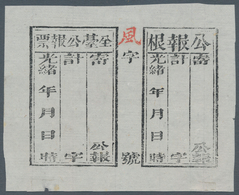 公需
報計
根
光緒
年
月
日
時
公報
字
風
字
號
至 公需
基 報計
票
光緒
年
月
日
時
公報
字